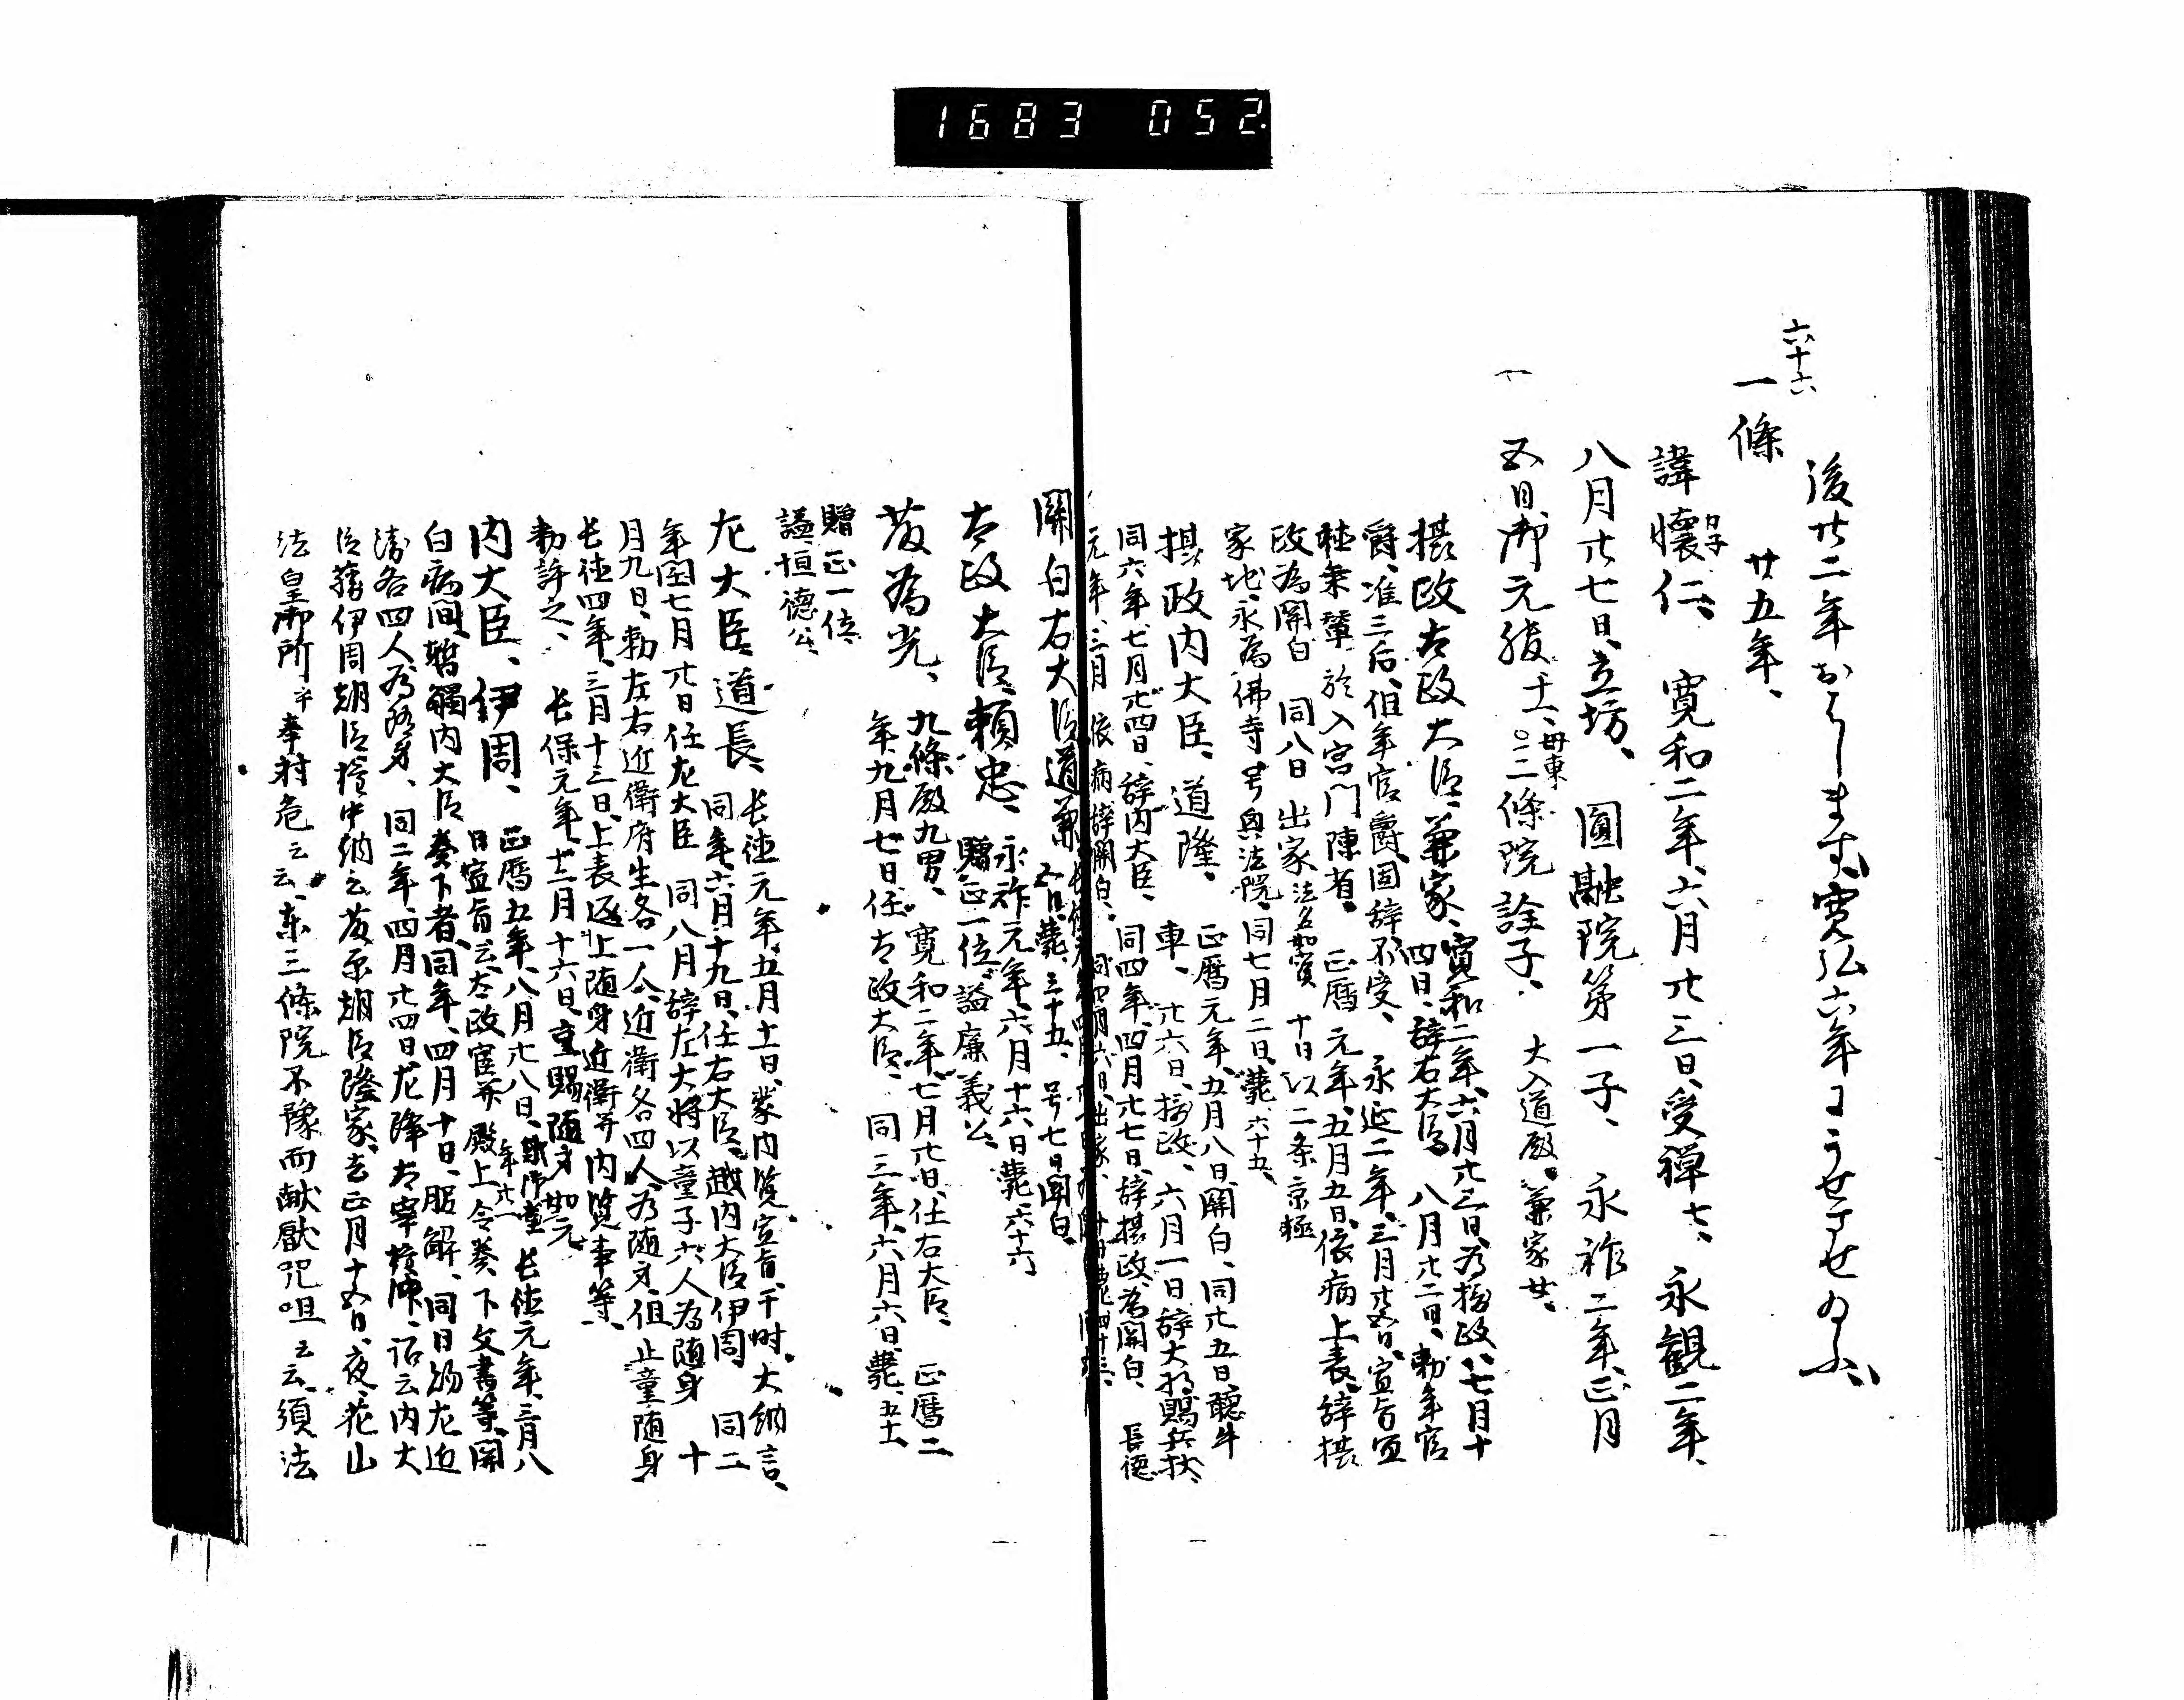 1683 052.
後廿二年おはします、寛弘六年にうせさせ給ふ、
六十六
一條 廿五年、
諱懐仁、 寛和二年、六月廿三日、受禅七、 永観二年、
カ子
八月廿七日、立坊、 圓融院第一子、 永祚二年、正月
五日、御元服、十一、母東三條院詮子、 大入道殿、兼家女、
摂政太政大臣、兼家、寛和二年、六月廿三日、為摂政、七月十
四日、辞右大臣、 八月廿二日、勅年官
爵、准三后、但年官爵、固辞不受、 永延二年、三月廿五日、宣旨宜
軽乗輦於入宮門陳者、 正暦元年、五月五日、依病上表、辞摂
政為関白 同八日出家 法名如実 十日以二条京極
家地、永為佛寺号興法院、同七月二日、薨、六十五、
摂政内大臣、道隆、 正暦元年、五月八日、関白、同廿五日、聴牛
車、 廿六日、摂政、 六月一日辞大将賜兵杖、
同六年、七月廿四日、辞内大臣、 同四年、四月廿七日、辞摂政、為関白、 長徳
元年、三月 依病辞関白、 同四月六日、出家、 薨四十三、
関白右大臣道兼 五月、薨、三十五、号七日関白、
太政大臣、頼忠、 永祚元年、六月十六日薨、六十六
贈正一位、謚廉義公、
藤為光、 九條殿九男、 寛和二年、七月廿日、任右大臣、 正暦二
年、九月七日、任太政大臣、 同三年、六月六日、薨、五十一、
贈正一位、
謚、恒徳公、
左大臣、道長、 長徳元年、五月十一日、蒙内覧、宣旨、于時、大納言、
同年、六月十九日、任右大臣、越内大臣伊周 同二
年、閏七月廿日任左大臣 同八月辞左大将以童子六人為随身 十
月九日、勅左右近衛府生各一人、近衛各四人、為随身、但止童随身
長徳四年、三月十三日、上表返上随身近衛并内覧事等、
勅許之、 長保元年、十二月十六日、重賜随身如元
内大臣、伊周、 正暦五年、八月廿八日、 年廿一 長徳元年、三月八
日宣旨云、太政官并殿上令奏、下文書等、関
白病間、暫觸内大臣奏下者、同年、四月十日、服解、同日給左近
衛各四人為随身、 同二年、四月廿四日、左降太宰権帥、詔云内大
臣藤伊周朝臣権中納言藤原朝臣隆家、去正月十五日、夜、花山
法皇御所乎奉射危云云、東三條院不豫而献厭咒咀云云、須法